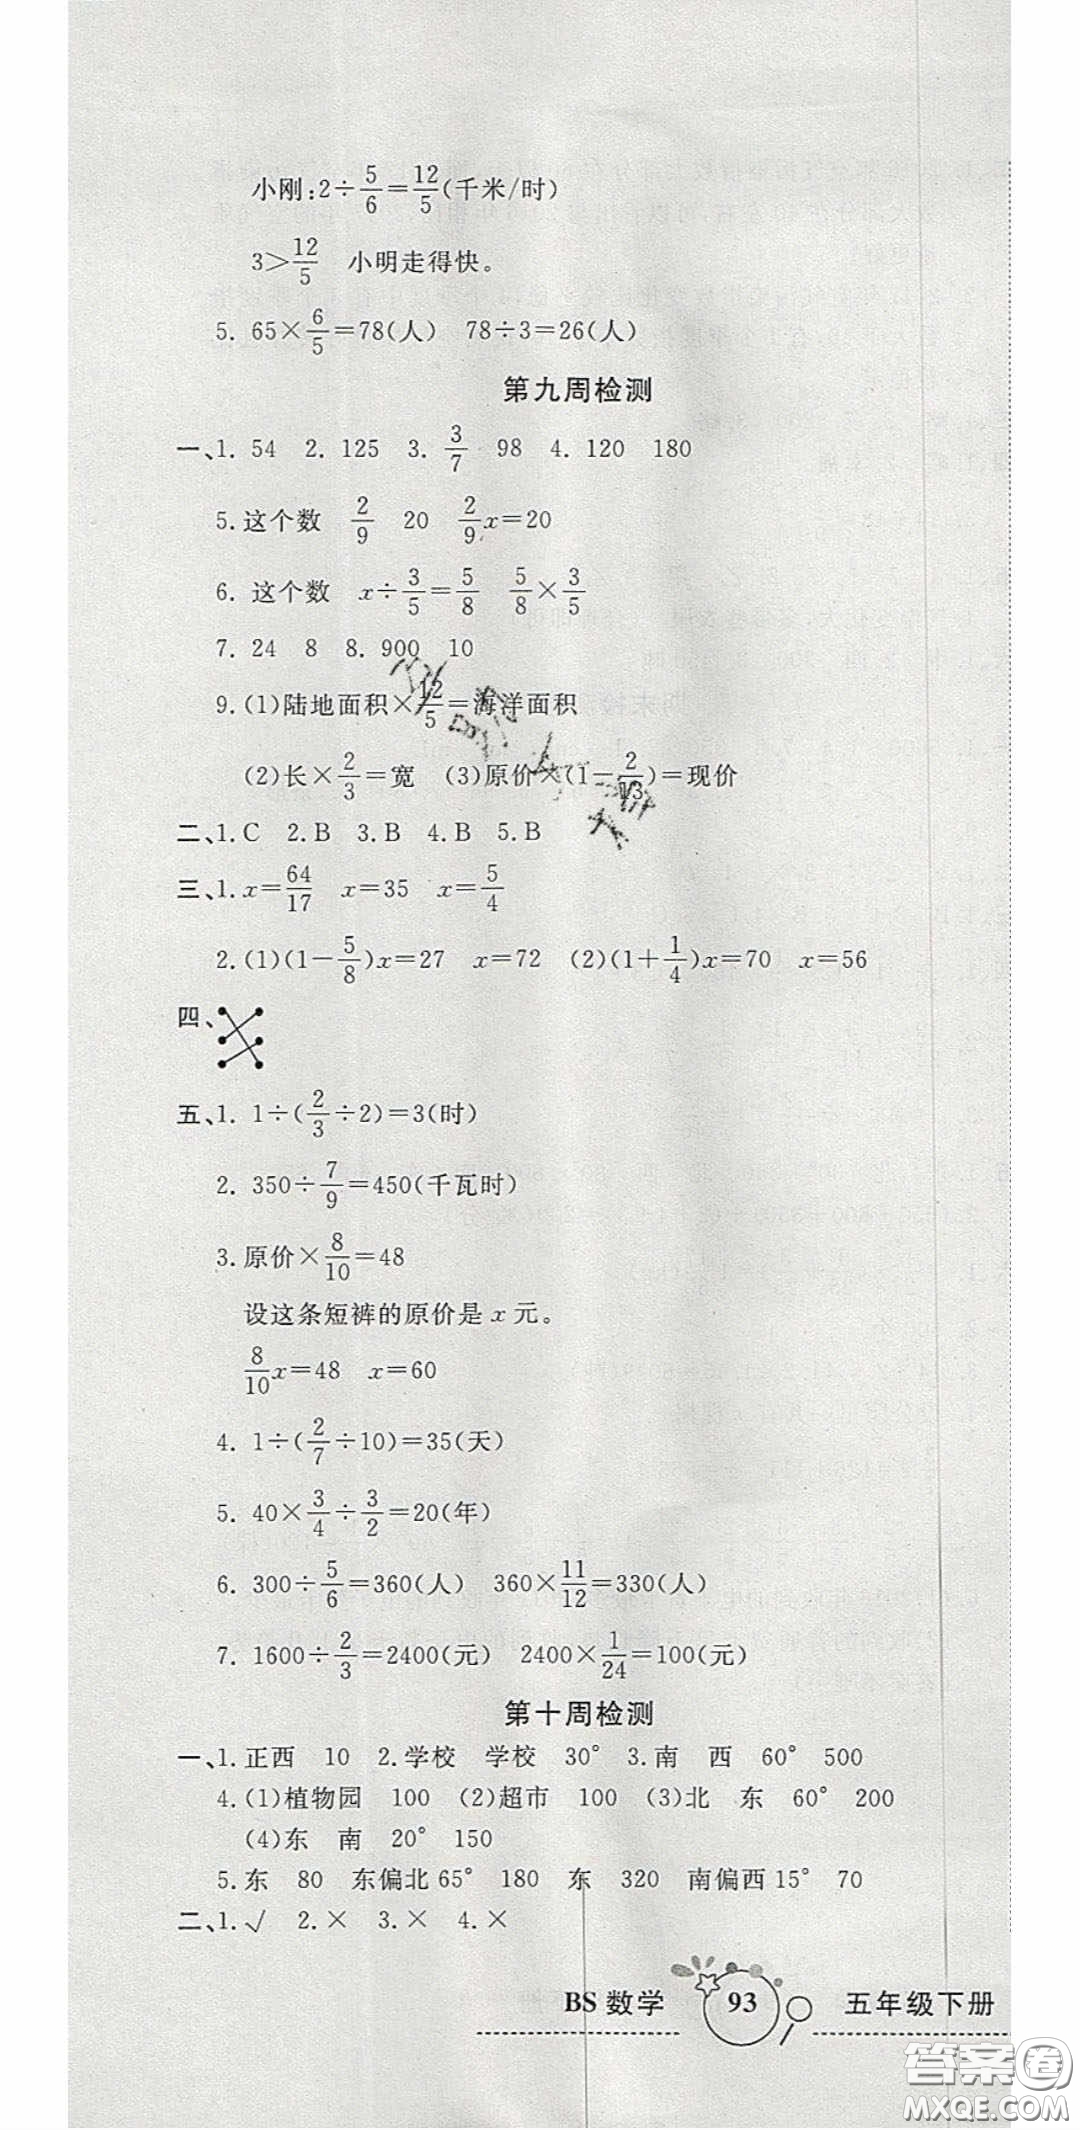 小刚:2÷5/6=12/5(千米/时)
3>12/5 小明走得快。
5. 65×6/5=78(人) 78÷3=26(人)
第九周检测
一、1. 54 2. 125 3. 3/7 98 4. 120 180
5. 这个数 2/9 20 2/9x=20
6. 这个数 x÷3/5=5/8 5/8×3/5
7. 24 8 8. 900 10
9. (1)陆地面积×12/5=海洋面积
(2)长×2/3=宽 (3)原价×(1-2/13)=现价
二、1. C 2. B 3. B 4. B 5. B
三、1. x=64/17 x=35 x=5/4
2. (1)(1-5/8)x=27 x=72 (2)(1+1/4)x=70 x=56
四、
五、1. 1÷(2/3÷2)=3(时)
2. 350÷7/9=450(千瓦时)
3. 原价×8/10=48
设这条短裤的原价是 x 元。
8/10x=48 x=60
4. 1÷(2/7÷10)=35(天)
5. 40×3/4÷3/2=20(年)
6. 300÷5/6=360(人) 360×11/12=330(人)
7. 1600÷2/3=2400(元) 2400×1/24=100(元)
第十周检测
一、1. 正西 10 2. 学校 学校 30° 3. 南 西 60° 500
4. (1)植物园 100 (2)超市 100 (3)北 东 60° 200
(4)东 南 20° 150
5. 东 80 东偏北65° 180 东 320 南偏西15° 70
二、1. √ 2. × 3. × 4. ×
BS 数学 93 五年级下册
答案圈
MXQE.COM